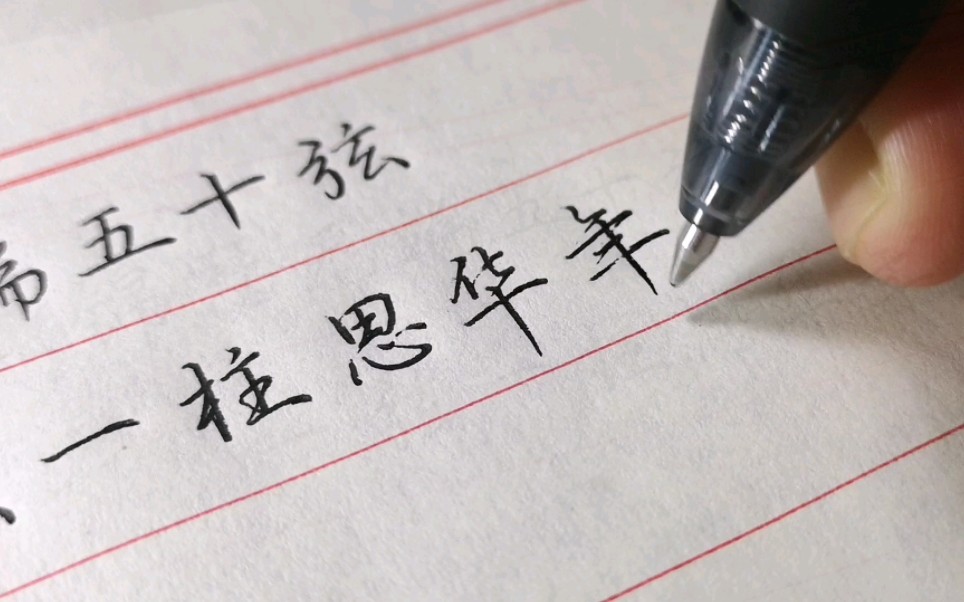 五十弦
一柱思华年